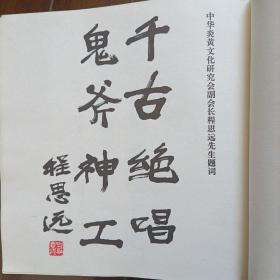 中华炎黄文化研究会副会长程思远先生题词
千古绝唱
鬼斧神工
程思远